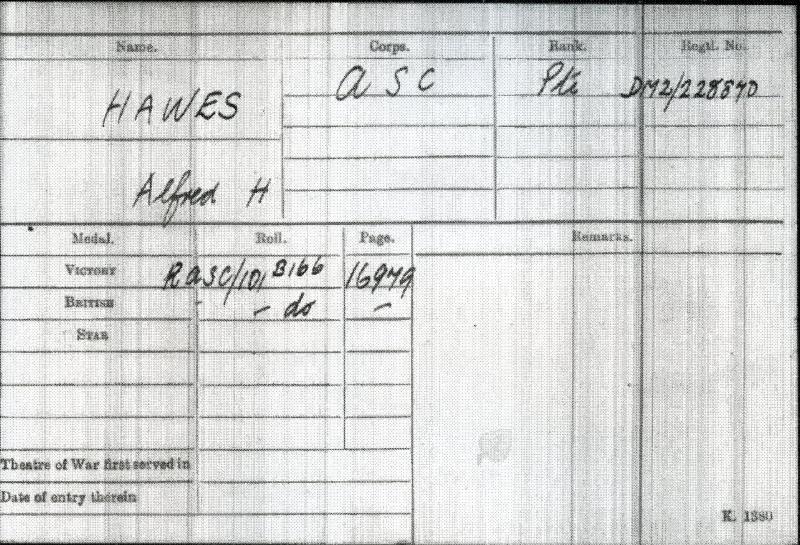 Name. Corps. Rank. Regtl. No.
HAWES ASC Pte DM2/228570
Alfred H
Medal. Roll. Page. Remarks.
VICTORY RASC/101 B166 16979
BRITISH - do -
STAR
Theatre of War first served in
Date of entry therein
K. 1380